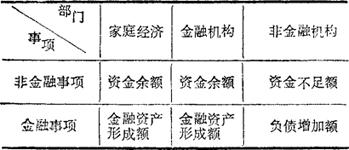 部门
事项
家庭经济 金融机构 非金融机构
非金融事项 资金余额 资金余额 资金不足额
金融事项 金融资产形成额 金融资产形成额 负债增加额